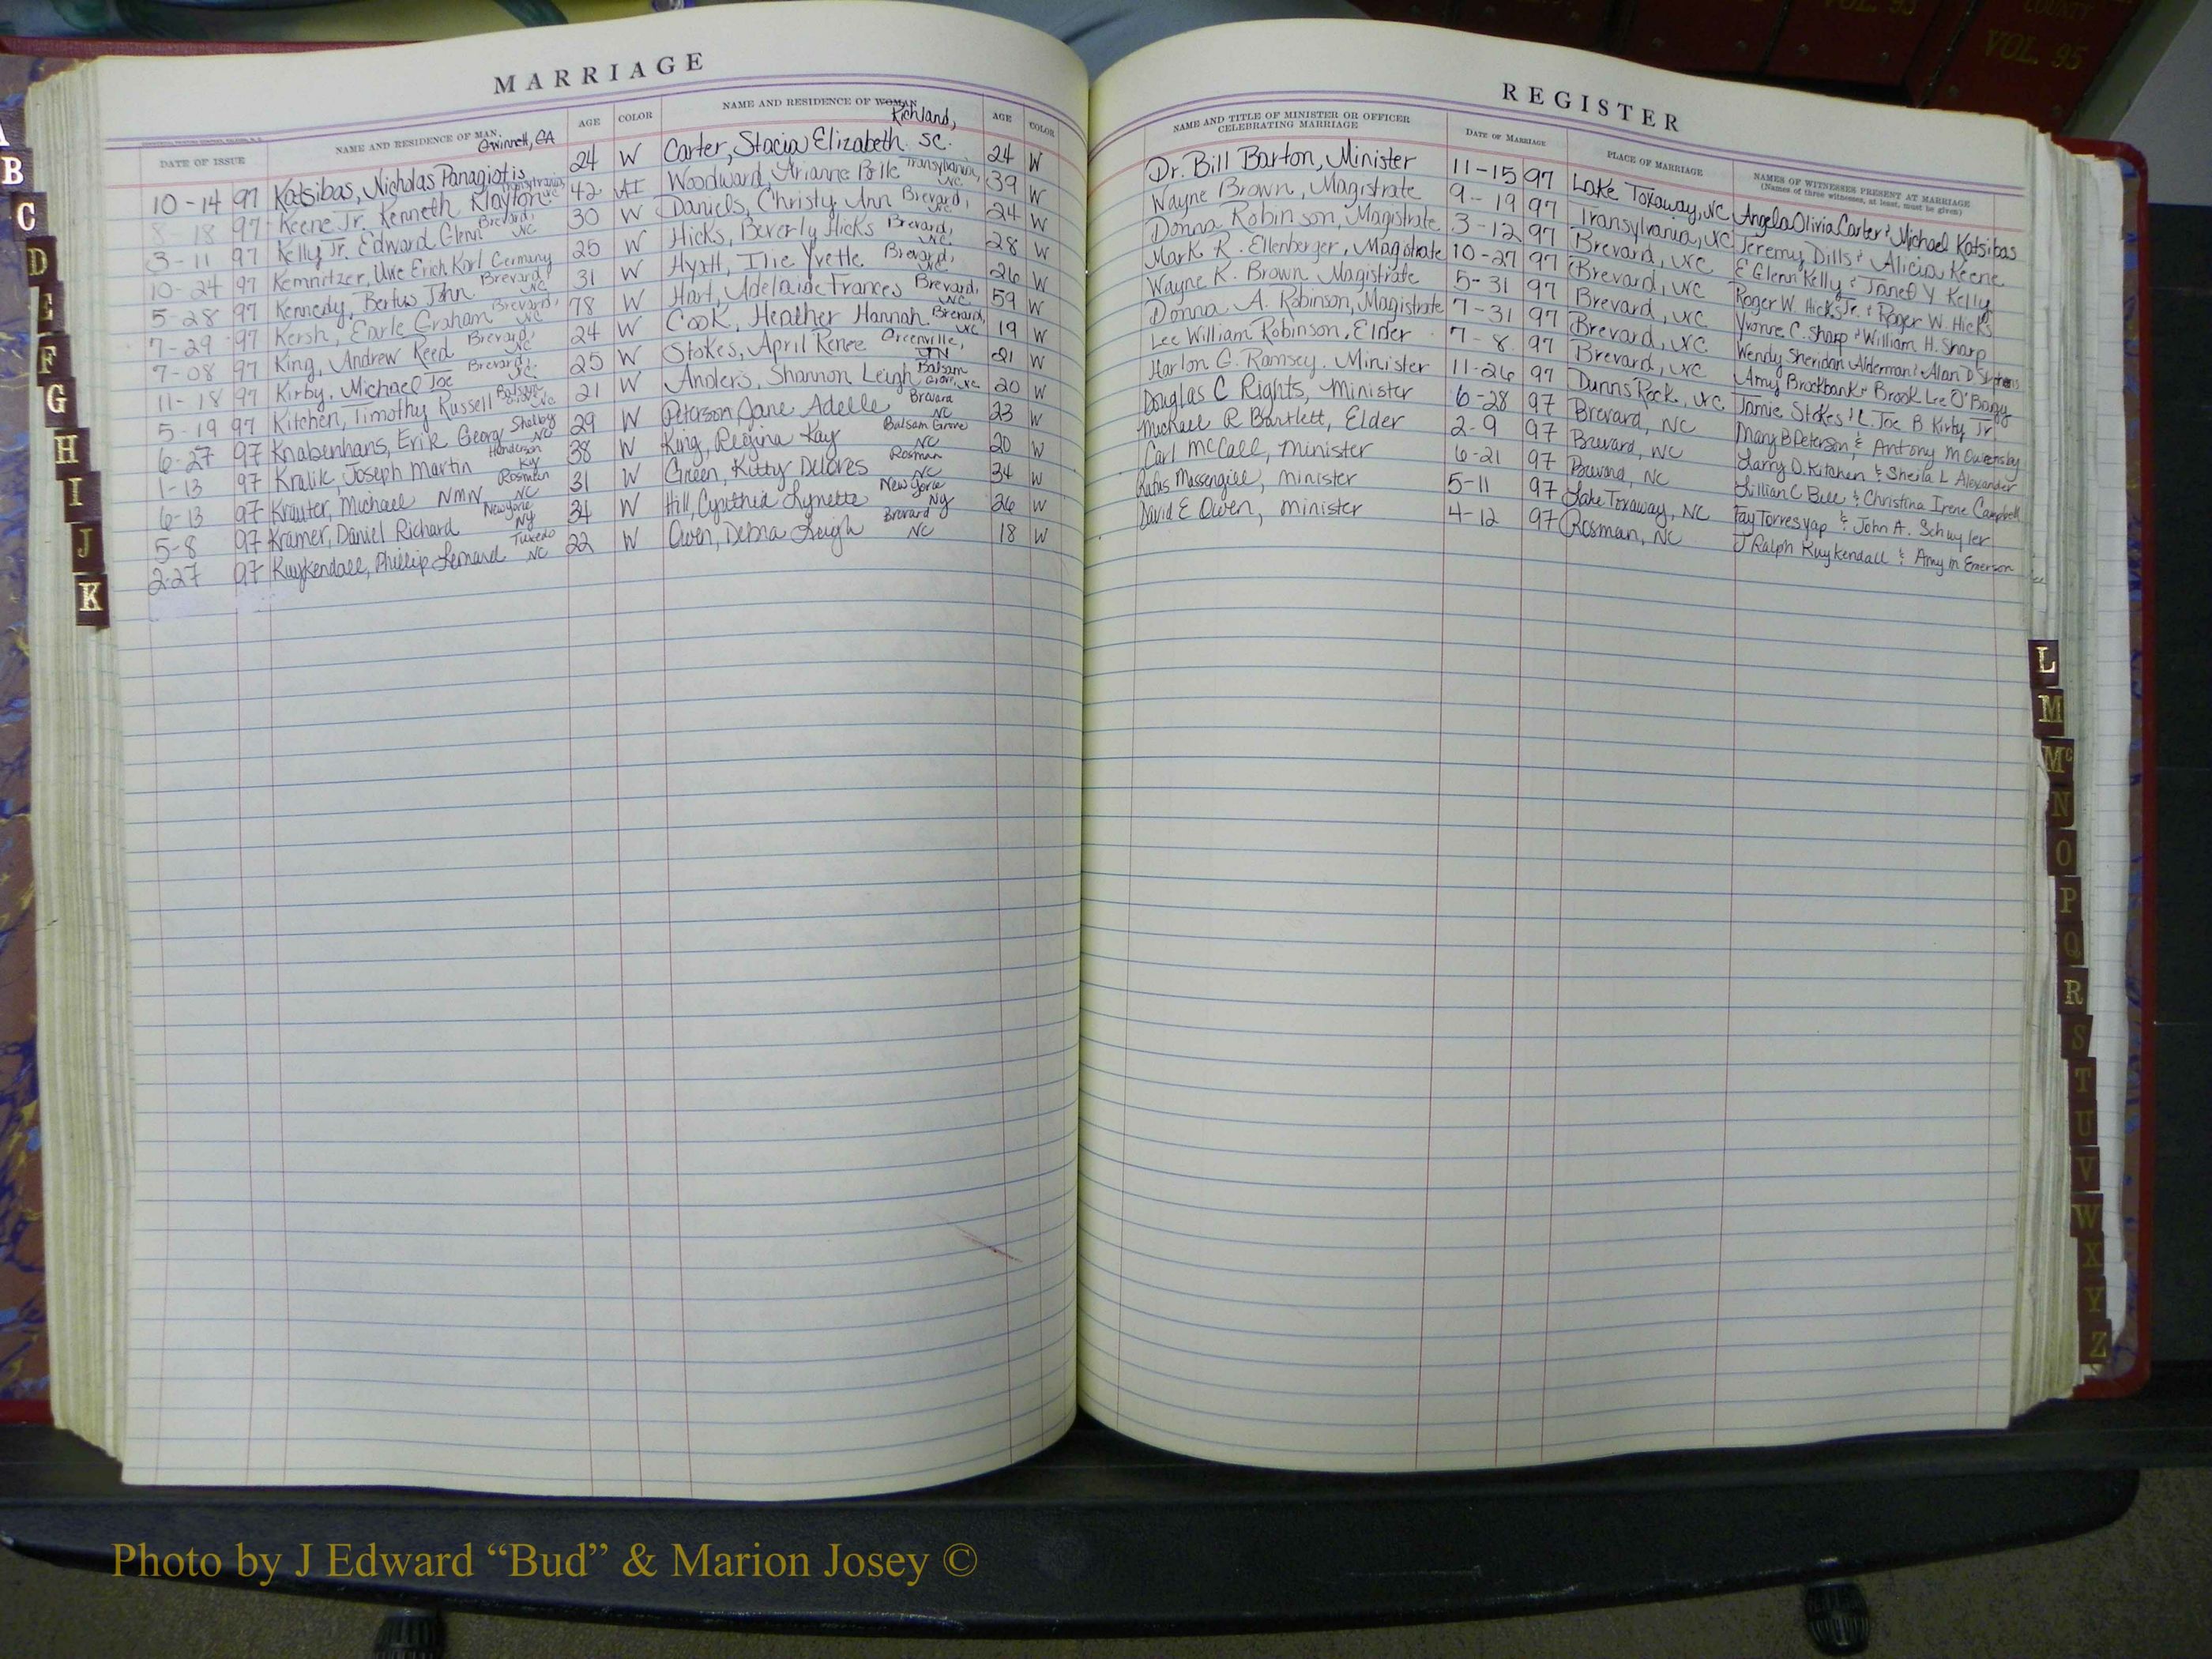 COUNTY
VOL. 95
MARRIAGE
DATE OF ISSUE NAME AND RESIDENCE OF MAN. AGE COLOR NAME AND RESIDENCE OF WOMAN AGE COLOR
10-14 97 Katsibas, Nicholas Panagiotis Gwinnett, GA 24 W Carter, Stacia Elizabeth Richland, SC. 24 W
8 18 97 Keene Jr. Kenneth Klayton Transylvania, NC 42 AI Woodward, Arianne Transylvania, NC 39 W
3-11 97 Kelly Jr. Edward Glenn Brevard, NC 30 W Daniels, Christy Ann Brevard, NC 24 W
10-24 97 Kemnitzer, Uwe Erich Karl Germany 25 W Hicks, Beverly Hicks Brevard, NC 28 W
5-28 97 Kennedy, Bertus John Brevard NC 31 W Hyatt, Ilie Yvette Brevard, NC 26 W
7-29 97 Kersh, Earle Graham Brevard, NC 78 W Hart, Adelaide Frances Brevard, NC 59 W
7-08 97 King, Andrew Reed Brevard, NC 24 W Cook, Heather Hannah Brevard, NC 19 W
11-18 97 Kirby, Michael Joe Brevard, NC 25 W Stokes, April Renee Greenville, TN 21 W
5-19 97 Kitchen, Timothy Russell Balsam Grove NC 21 W Anders, Shannon Leigh Balsam Grove, NC 20 W
6-27 97 Knabenhans, Erik Georg Shelby NC 29 W Peterson Jane Adelle Brevard NC 23 W
1-13 97 Kralik, Joseph Martin Henderson KY 38 W King, Regina Kay Balsam Grove NC 20 W
6-13 97 Krauter, Michael NMN Rosman NC 31 W Green, Kitty Delores Rosman NC 34 W
5-8 97 Kramer, Daniel Richard New York NY 34 W Hill, Cynthia Lynette New York NY 26 W
2-27 97 Kuykendall, Phillip Lenard Tuxedo NC 22 W Owen, Debra Leigh Brevard NC 18 W
REGISTER
NAME AND TITLE OF MINISTER OR OFFICER CELEBRATING MARRIAGE DATE OF MARRIAGE PLACE OF MARRIAGE NAMES OF WITNESSES PRESENT AT MARRIAGE
(Names of three witnesses, at least, must be given)
Dr. Bill Barton, Minister 11-15 97 Lake Toxaway, NC Angela Olivia Carter & Michael Katsibas
Wayne Brown, Magistrate 9-19 97 Transylvania, NC Jeremy Dills & Alicia Keene
Donna Robinson, Magistrate 3-12 97 Brevard, NC E Glenn Kelly & Janet Y Kelly
Mark R. Ellenberger, Magistrate 10-27 97 Brevard, NC Roger W. Hicks Jr. & Roger W. Hicks
Wayne K. Brown Magistrate 5-31 97 Brevard, NC Yvonne C. Sharp & William H. Sharp
Donna A. Robinson, Magistrate 7-31 97 Brevard, NC Wendy Sheridan Alderman & Alan D Stephens
Lee William Robinson, Elder 7-8 97 Brevard, NC Amy Brockbank & Brook Lee O'Bagy
Harlon G. Ramsey, Minister 11-26 97 Dunns Rock, NC Jamie Stokes & L. Joe B. Kirby Jr
Douglas C Rights, Minister 6-28 97 Brevard, NC Mary B Peterson & Antony M Owensby
Michael R Bartlett, Elder 2-9 97 Brevard, NC Larry D. Kitchen & Sheila L Alexander
Carl McCall, minister 6-21 97 Brevard, NC Lillian C Bull & Christina Irene Campbell
Rufus Massengill, minister 5-11 97 Lake Toxaway, NC Fay Torres yap & John A. Schuyler
David E Owen, minister 4-12 97 Rosman, NC J Ralph Kuykendall & Amy M Emerson
A
B
C
D
E
F
G
H
I
J
K
L
M
Mc
N
O
P
Q
R
S
T
U
V
W
X
Y
Z
Photo by J Edward “Bud” & Marion Josey ©